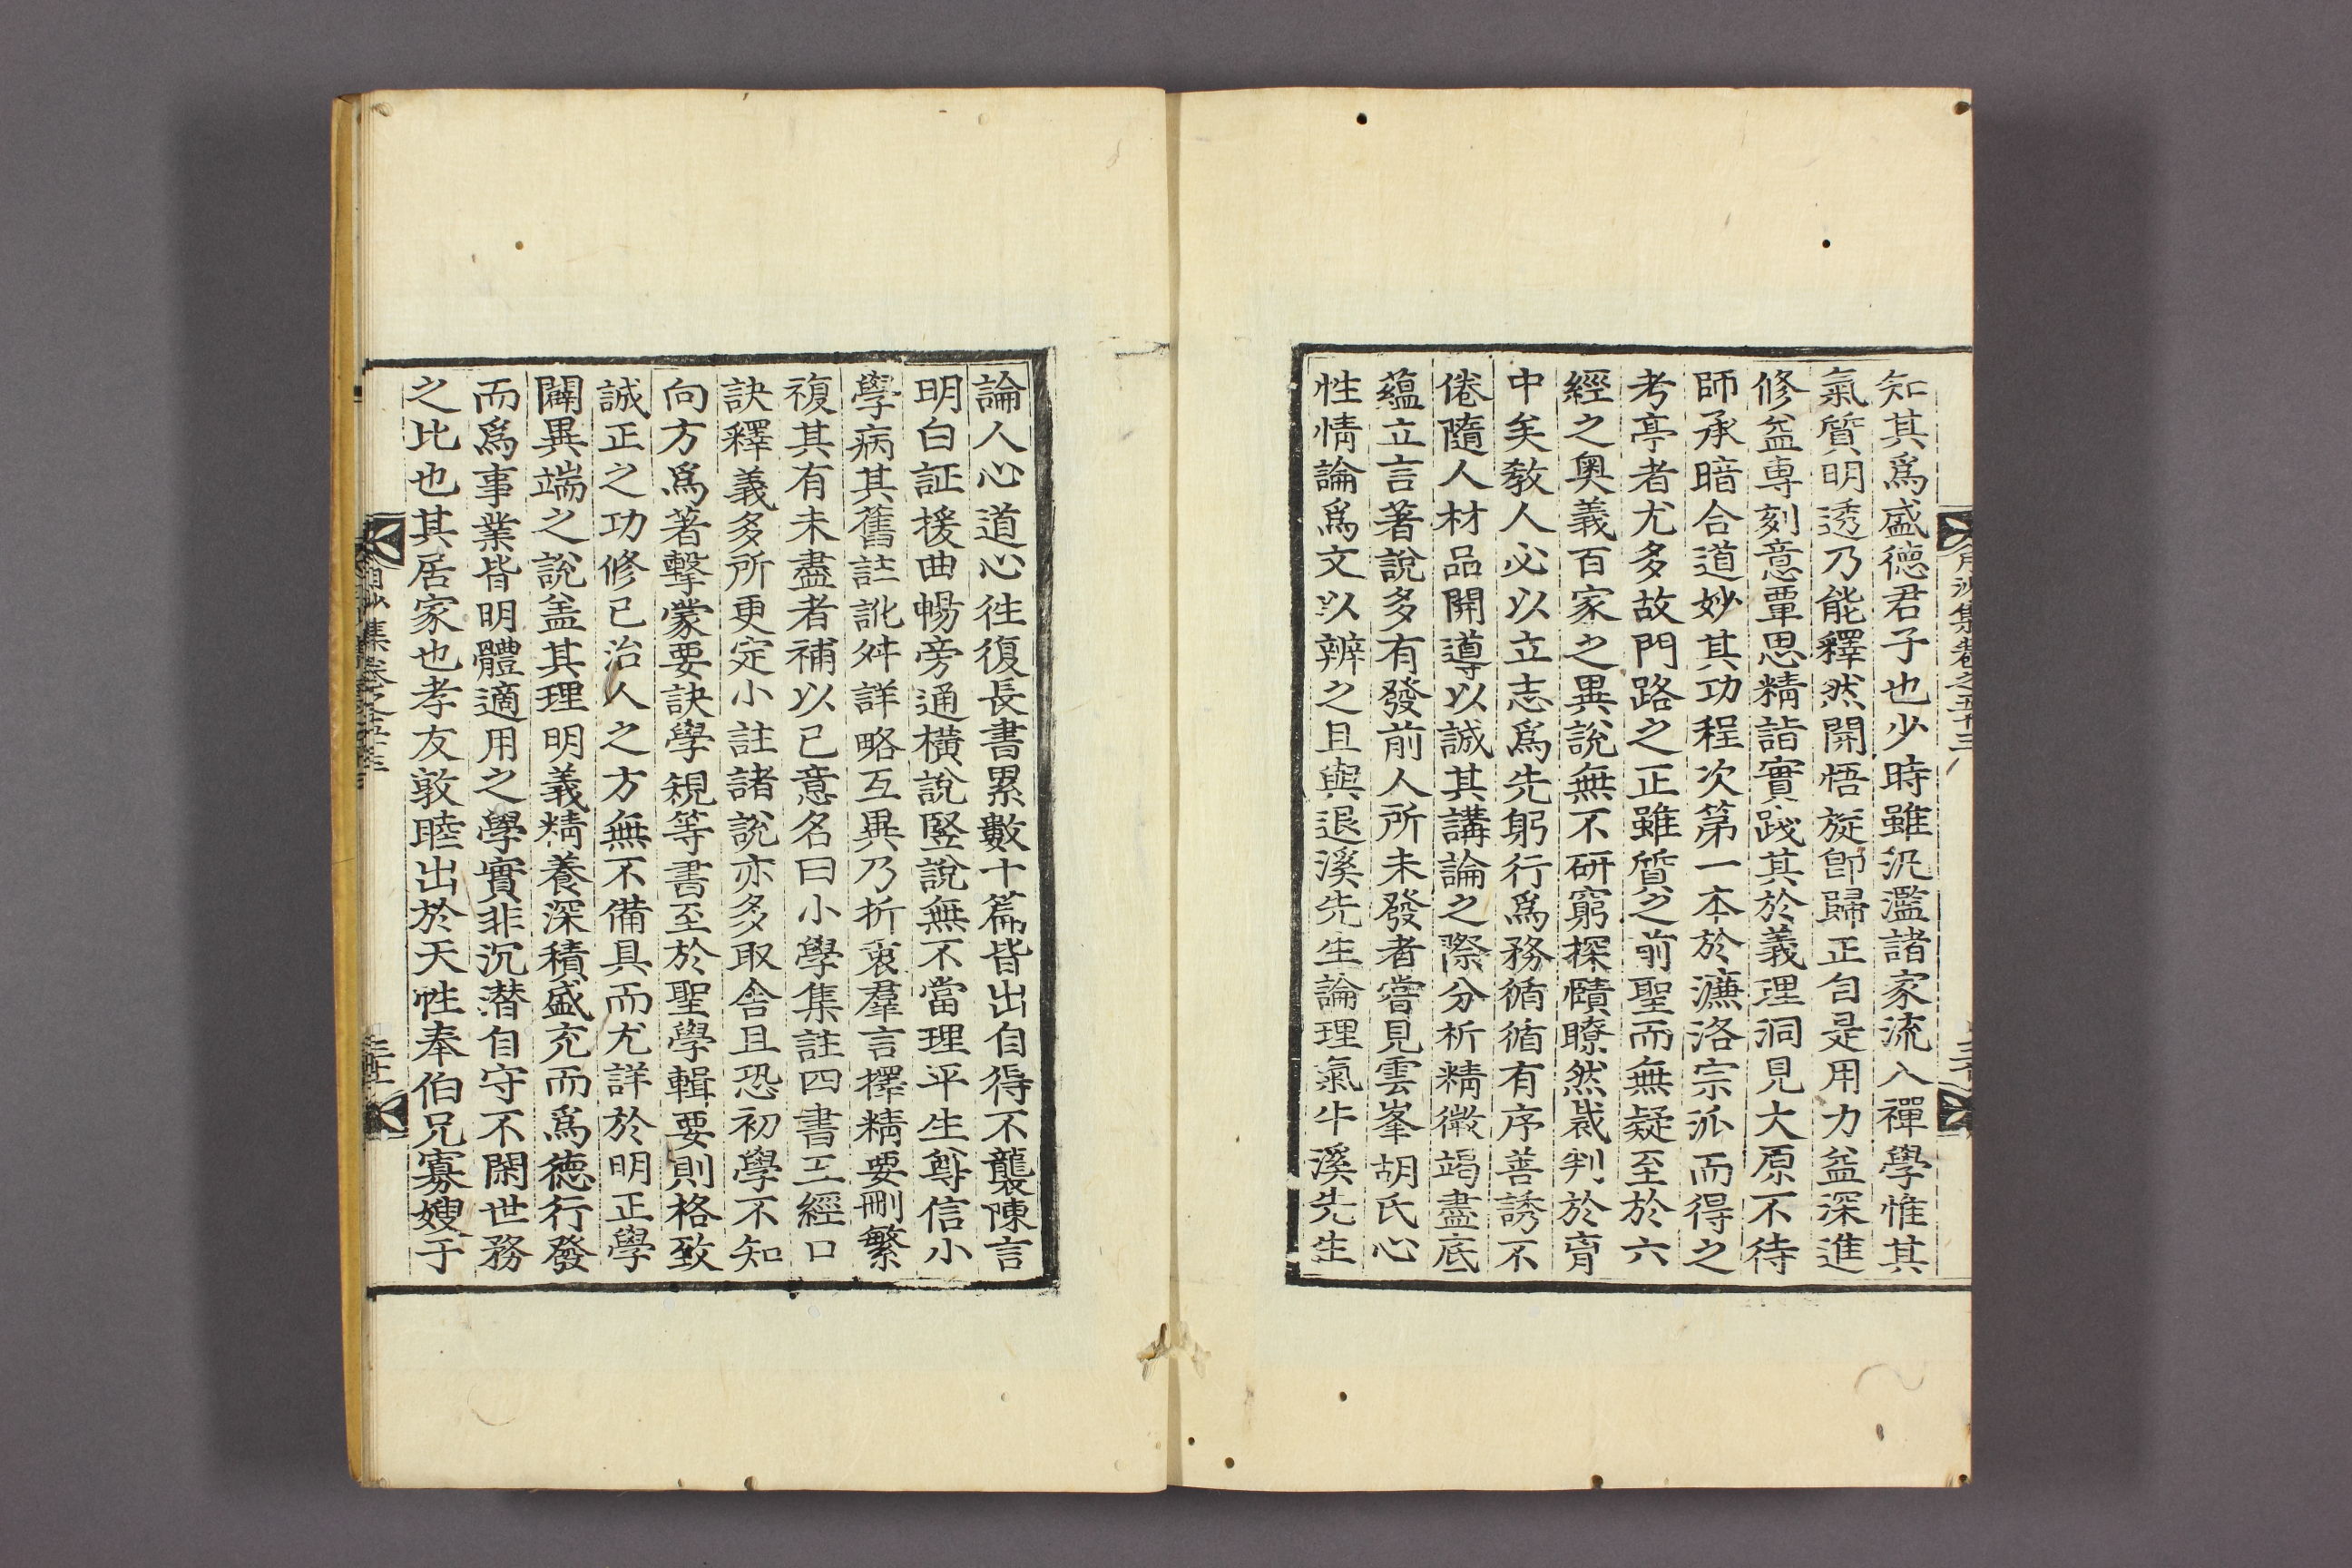 知其爲盛德君子也少時雖汎濫諸家流入禪學惟其
氣質明透乃能釋然開悟旋卽歸正自是用力益深進
修益專刻意覃思精詣實踐其於義理洞見大原不待
師承暗合道妙其功程次第一本於濂洛宗派而得之
考亭者尤多故門路之正雖質之前聖而無疑至於六
經之奧義百家之異說無不硏窮探賾瞭然裁判於胷
中矣敎人必以立志爲先躬行爲務循循有序善誘不
倦隨人材品開導以誠其講論之際分析精微竭盡底
蘊立言著說多有發前人所未發者嘗見雲峯胡氏心
性情論爲文以辨之且與退溪先生論理氣牛溪先生
論人心道心徃復長書累數十篇皆出自得不襲陳言
明白証援曲暢旁通橫說竪說無不當理平生尊信小
學病其舊註訛舛詳略互異乃折衷羣言擇精要刪繁
複其有未盡者補以己意名曰小學集註四書三經口
訣釋義多所更定小註諸說亦多取舍且恐初學不知
向方爲著擊蒙要訣學規等書至於聖學輯要則格致
誠正之功修己治人之方無不備具而尤詳於明正學
闢異端之說盖其理明義精養深積盛充而爲德行發
而爲事業皆明體適用之學實非沉潛自守不閑世務
之比也其居家也孝友敦睦出於天性奉伯兄寡嫂于